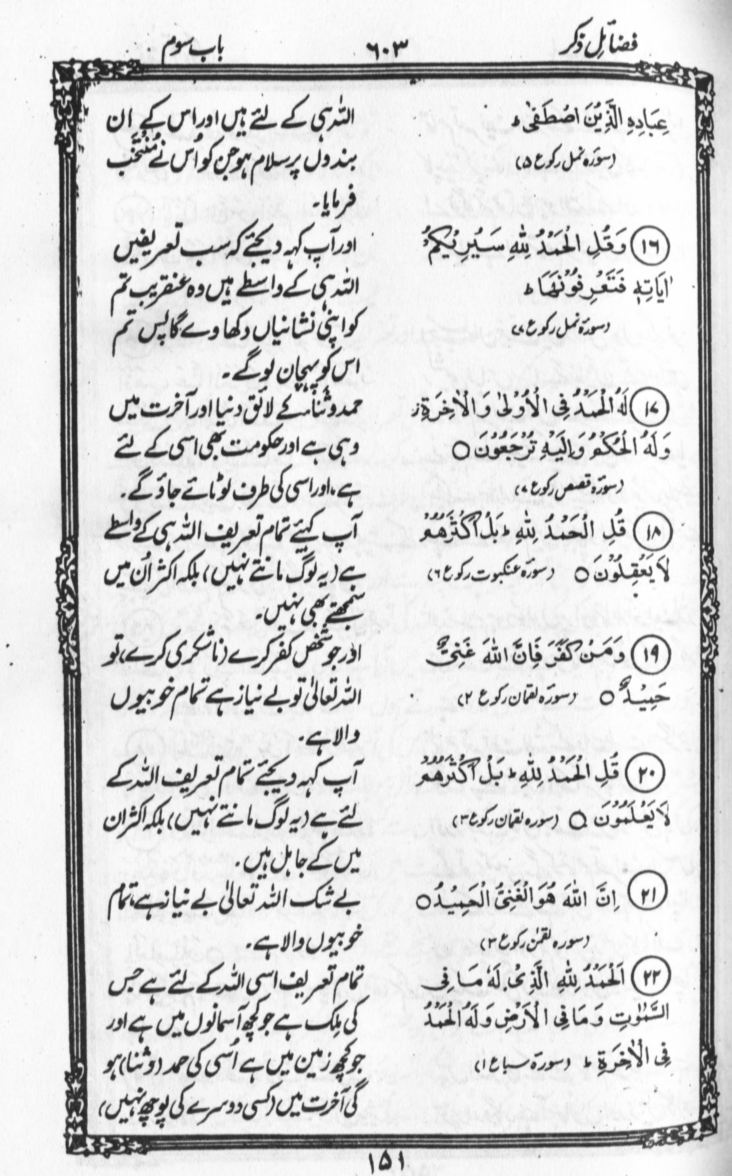 فضائل ذکر
۶۰۳
باب سوم
عِبَادِہِ الَّذِیْنَ اصْطَفٰی ط
(سورۂ نمل رکوع ۵)
اللہ ہی کے لئے ہیں اور اس کے ان
بندوں پر سلام ہو جن کو اُس نے مُنْتَخَب
فرمایا۔
(۱۶) وَقُلِ الْحَمْدُ لِلّٰہِ سَیُرِیْکُمْ
اٰیَاتِہٖ فَتَعْرِفُوْنَھَا ط
(سورۂ نمل رکوع ۷)
اور آپ کہہ دیجئے کہ سب تعریفیں
اللہ ہی کے واسطے ہیں وہ عنقریب تم
کو اپنی نشانیاں دکھا وے گا پس تم
اس کو پہچان لو گے۔
(۱۷) لَہُ الْحَمْدُ فِی الْاُوْلٰی وَ الْاٰخِرَۃِ ز
وَلَہُ الْحُکْمُ وَاِلَیْہِ تُرْجَعُوْنَ ○
(سورۂ قصص رکوع ۷)
حمد و ثناء کے لائق دنیا اور آخرت میں
وہی ہے اور حکومت بھی اسی کے لئے
ہے، اور اسی کی طرف لوٹائے جاؤ گے۔
(۱۸) قُلِ الْحَمْدُ لِلّٰہِ ط بَلْ اَکْثَرُھُمْ
لَا یَعْقِلُوْنَ ○ (سورۂ عنکبوت رکوع ۶)
آپ کہئے تمام تعریف اللہ ہی کے واسطے
ہے (یہ لوگ مانتے نہیں) بلکہ اکثر ان میں
سمجھتے بھی نہیں۔
(۱۹) وَمَنْ کَفَرَ فَاِنَّ اللّٰہَ غَنِیٌّ
حَمِیْدٌ ○ (سورۂ لقمان رکوع ۲)
اور جو شخص کفر کرے (ناشکری کرے) تو
اللہ تعالیٰ تو بے نیاز ہے تمام خوبیوں
والا ہے۔
(۲۰) قُلِ الْحَمْدُ لِلّٰہِ ط بَلْ اَکْثَرُھُمْ
لَا یَعْلَمُوْنَ ○ (سورہ لقمان رکوع ۳)
آپ کہہ دیجئے تمام تعریف اللہ کے
لئے ہے (یہ لوگ مانتے نہیں) بلکہ اکثر ان
میں کے جاہل ہیں۔
(۲۱) اِنَّ اللّٰہَ ھُوَ الْغَنِیُّ الْحَمِیْدُ ○
(سورہ لقمٰن رکوع ۳)
بے شک اللہ تعالیٰ بے نیاز ہے، تمام
خوبیوں والا ہے۔
(۲۲) اَلْحَمْدُ لِلّٰہِ الَّذِیْ لَہٗ مَا فِی
السَّمٰوٰتِ وَمَا فِی الْاَرْضِ وَلَہُ الْحَمْدُ
فِی الْاٰخِرَۃِ ط (سورۃ سبا ع ۱)
تمام تعریف اسی اللہ کے لئے ہے جس
کی مِلک ہے جو کچھ آسمانوں میں ہے اور
جو کچھ زمین میں ہے اُسی کی حمد (و ثنا) ہو
گی آخرت میں (کسی دوسرے کی پوچھ نہیں)
۱۵۱